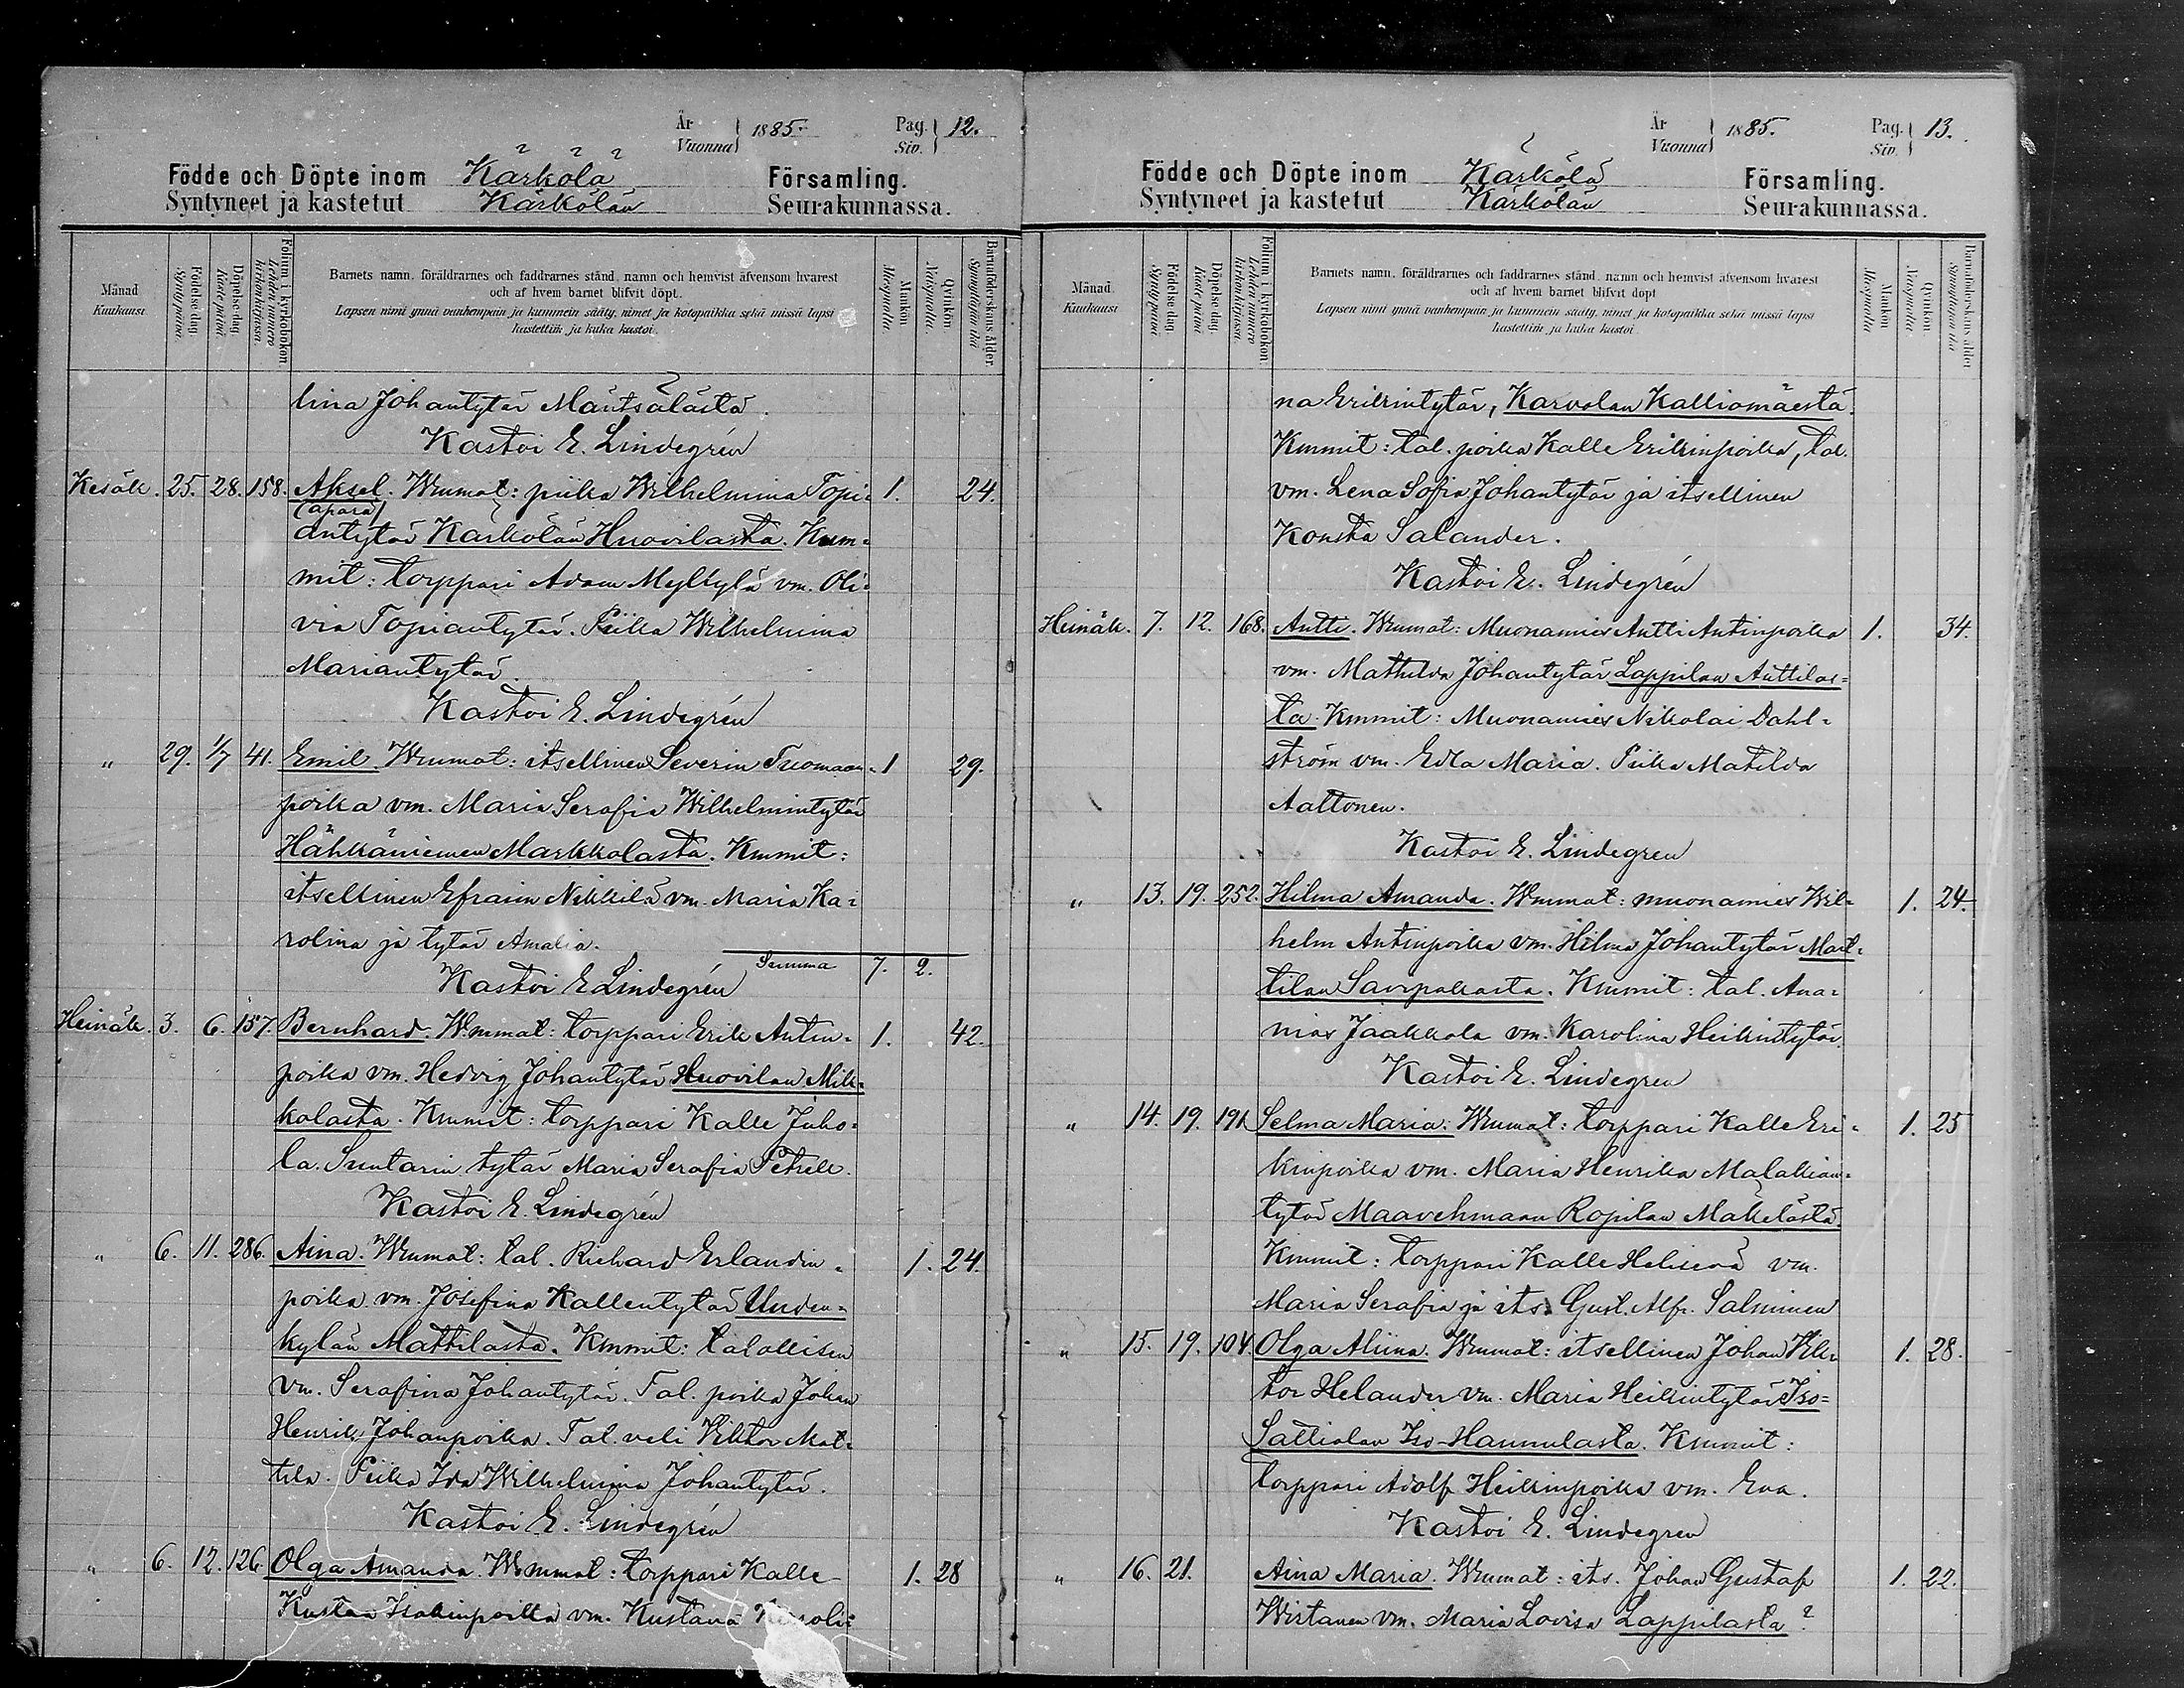 År
Vuonna } 1885.
Pag.
Siv. } 12.
Födde och Döpte inom Kärkölä Församling.
Syntyneet ja kastetut Kärkölän Seurakunnassa.
Månad
Kuukausi
Födelse dag.
Syntypäivä
Döpelse dag.
Kaste päivä
Folium i kyrkoboken
Lehden numero kirkonkirjassa.
Barnets namn, föräldrarnes och faddrarnes stånd, namn och hemvist äfvensom hvarest
och af hvem barnet blifvit döpt.
Lapsen nimi ynnä vanhempain ja kummein sääty, nimet ja kotopaikka sekä missä lapsi
kastettiin ja kuka kastoi.
Mankön
Miespuolia.
Qvinkön
Naispuolia.
Barnaföderskans ålder
Synnyttäjän ikä
lina Johantytär Mäntsälästä.
Kastoi E. Lindegrén
Kesäk. 25. 28. 158. Aksel. Wmmat: piika Wilhelmina Topi= 1. 24.
(äpärä)
antytär Kärkölän Huovilasta. Kum=
mit: torppari Adam Myllylä vm. Oli=
via Topiantytär. Piika Wilhelmina
Mariantytär.
Kastoi E. Lindegrén
" 29. 1/7 41. Emil. Wmmat: itsellinen Severin Tuomaan= 1 29.
poika vm. Maria Serafia Wilhelmintytär
Hähkäniemen Markkolasta. Kmmit:
itsellinen Efraim Nikkilä vm. Maria Ka=
rolina ja tytär Amalia.
Summa 7. 2.
Kastoi E Lindegrén
Heinäk. 3. 6. 157. Bernhard. Wmmat: torppari Erik Antin= 1. 42.
poika vm. Hedvig Johantytär Huovilan Mik=
kolasta. Kmmit: torppari Kalle Juho=
la. Suntarin tytär Maria Serafia Petrell.
Kastoi E. Lindegrén
" 6. 11. 286. Aina. Wmmat: tal. Richard Erlandin= 1. 24.
poika vm. Josefina Kallentytär Uuden=
kylän Mattilasta. Kmmit: talollisen
vm. Serafina Johantytär. Tal. poika Johan
Henrik Johanpoika. Tal. veli Viktor Mat=
tila. Piika Ida Wilhelmina Johantytär.
Kastoi E. Lindegrén
" 6. 12. 126. Olga Amanda. Wmmat: torppari Kalle 1. 28
Kustaa Isakinpoika vm. Kustava
År
Vuonna } 1885.
Pag.
Siv. } 13.
Födde och Döpte inom Kärkölä Församling.
Syntyneet ja kastetut Kärkölän Seurakunnassa.
Månad.
Kuukausi
Födelse dag.
Syntypäivä
Döpelse dag.
Kaste päivä
Folium i kyrkoboken
Lehden numero kirkonkirjassa.
Barnets namn, föräldrarnes och faddrarnes stånd, namn och hemvist äfvensom hvarest
och af hvem barnet blifvit döpt
Lapsen nimi ynnä vanhempain ja kummein sääty, nimet ja kotopaikka sekä missä lapsi
kastettiin ja kuka kastoi
Mankön
Miespuolia
Qvinkön
Naispuolia.
Barnaföderskans ålder
Synnyttäjän ikä
na Erikintytär, Karvalan Kalliomäestä.
Kmmit: tal. poika Kalle Erikinpoika, tal.
vm. Lena Sofia Johantytär ja itsellinen
Konsta Salander.
Kastoi E. Lindegrén
Heinäk. 7. 12. 168. Antti. Wmmat: Muonamies Antti Antinpoika 1. 34.
vm. Mathilda Johantytär Lappilan Anttilas=
ta. Kmmit: Muonamies Nikolai Dahl=
ström vm. Edla Maria. Piika Matilda
Aaltonen.
Kastoi E. Lindegren
" 13. 19. 252. Hilma Amanda. Wmmat: muonamies Wil= 1. 24.
helm Antinpoika vm. Hilma Johantytär Mart=
tilan Savipakasta. Kmmit: tal. Ana=
nias Jaakkola vm. Karolina Heikintytär.
Kastoi E. Lindegren
" 14. 19. 191. Selma Maria. Wmmat: torppari Kalle Eri= 1. 25
kinpoika vm. Maria Henrika Malakian=
tytär Maavehmaan Ropilan Mäkelästä.
Kmmit: torppari Kalle Helisevä vm.
Maria Serafia ja its. Gust. Alfr. Salminen
" 15. 19. 104. Olga Aliina. Wmmat: itsellinen Johan Vik= 1. 28.
tor Helander vm. Maria Heikintytär Iso=
Sattialan Iso-Hannulasta. Kmmit:
torppari Adolf Heikinpoika vm. Eva.
Kastoi E. Lindegren
" 16. 21. Aina Maria. Wmmat: its. Johan Gustaf 1. 22.
Wirtanen vm. Maria Lovisa Lappilasta?